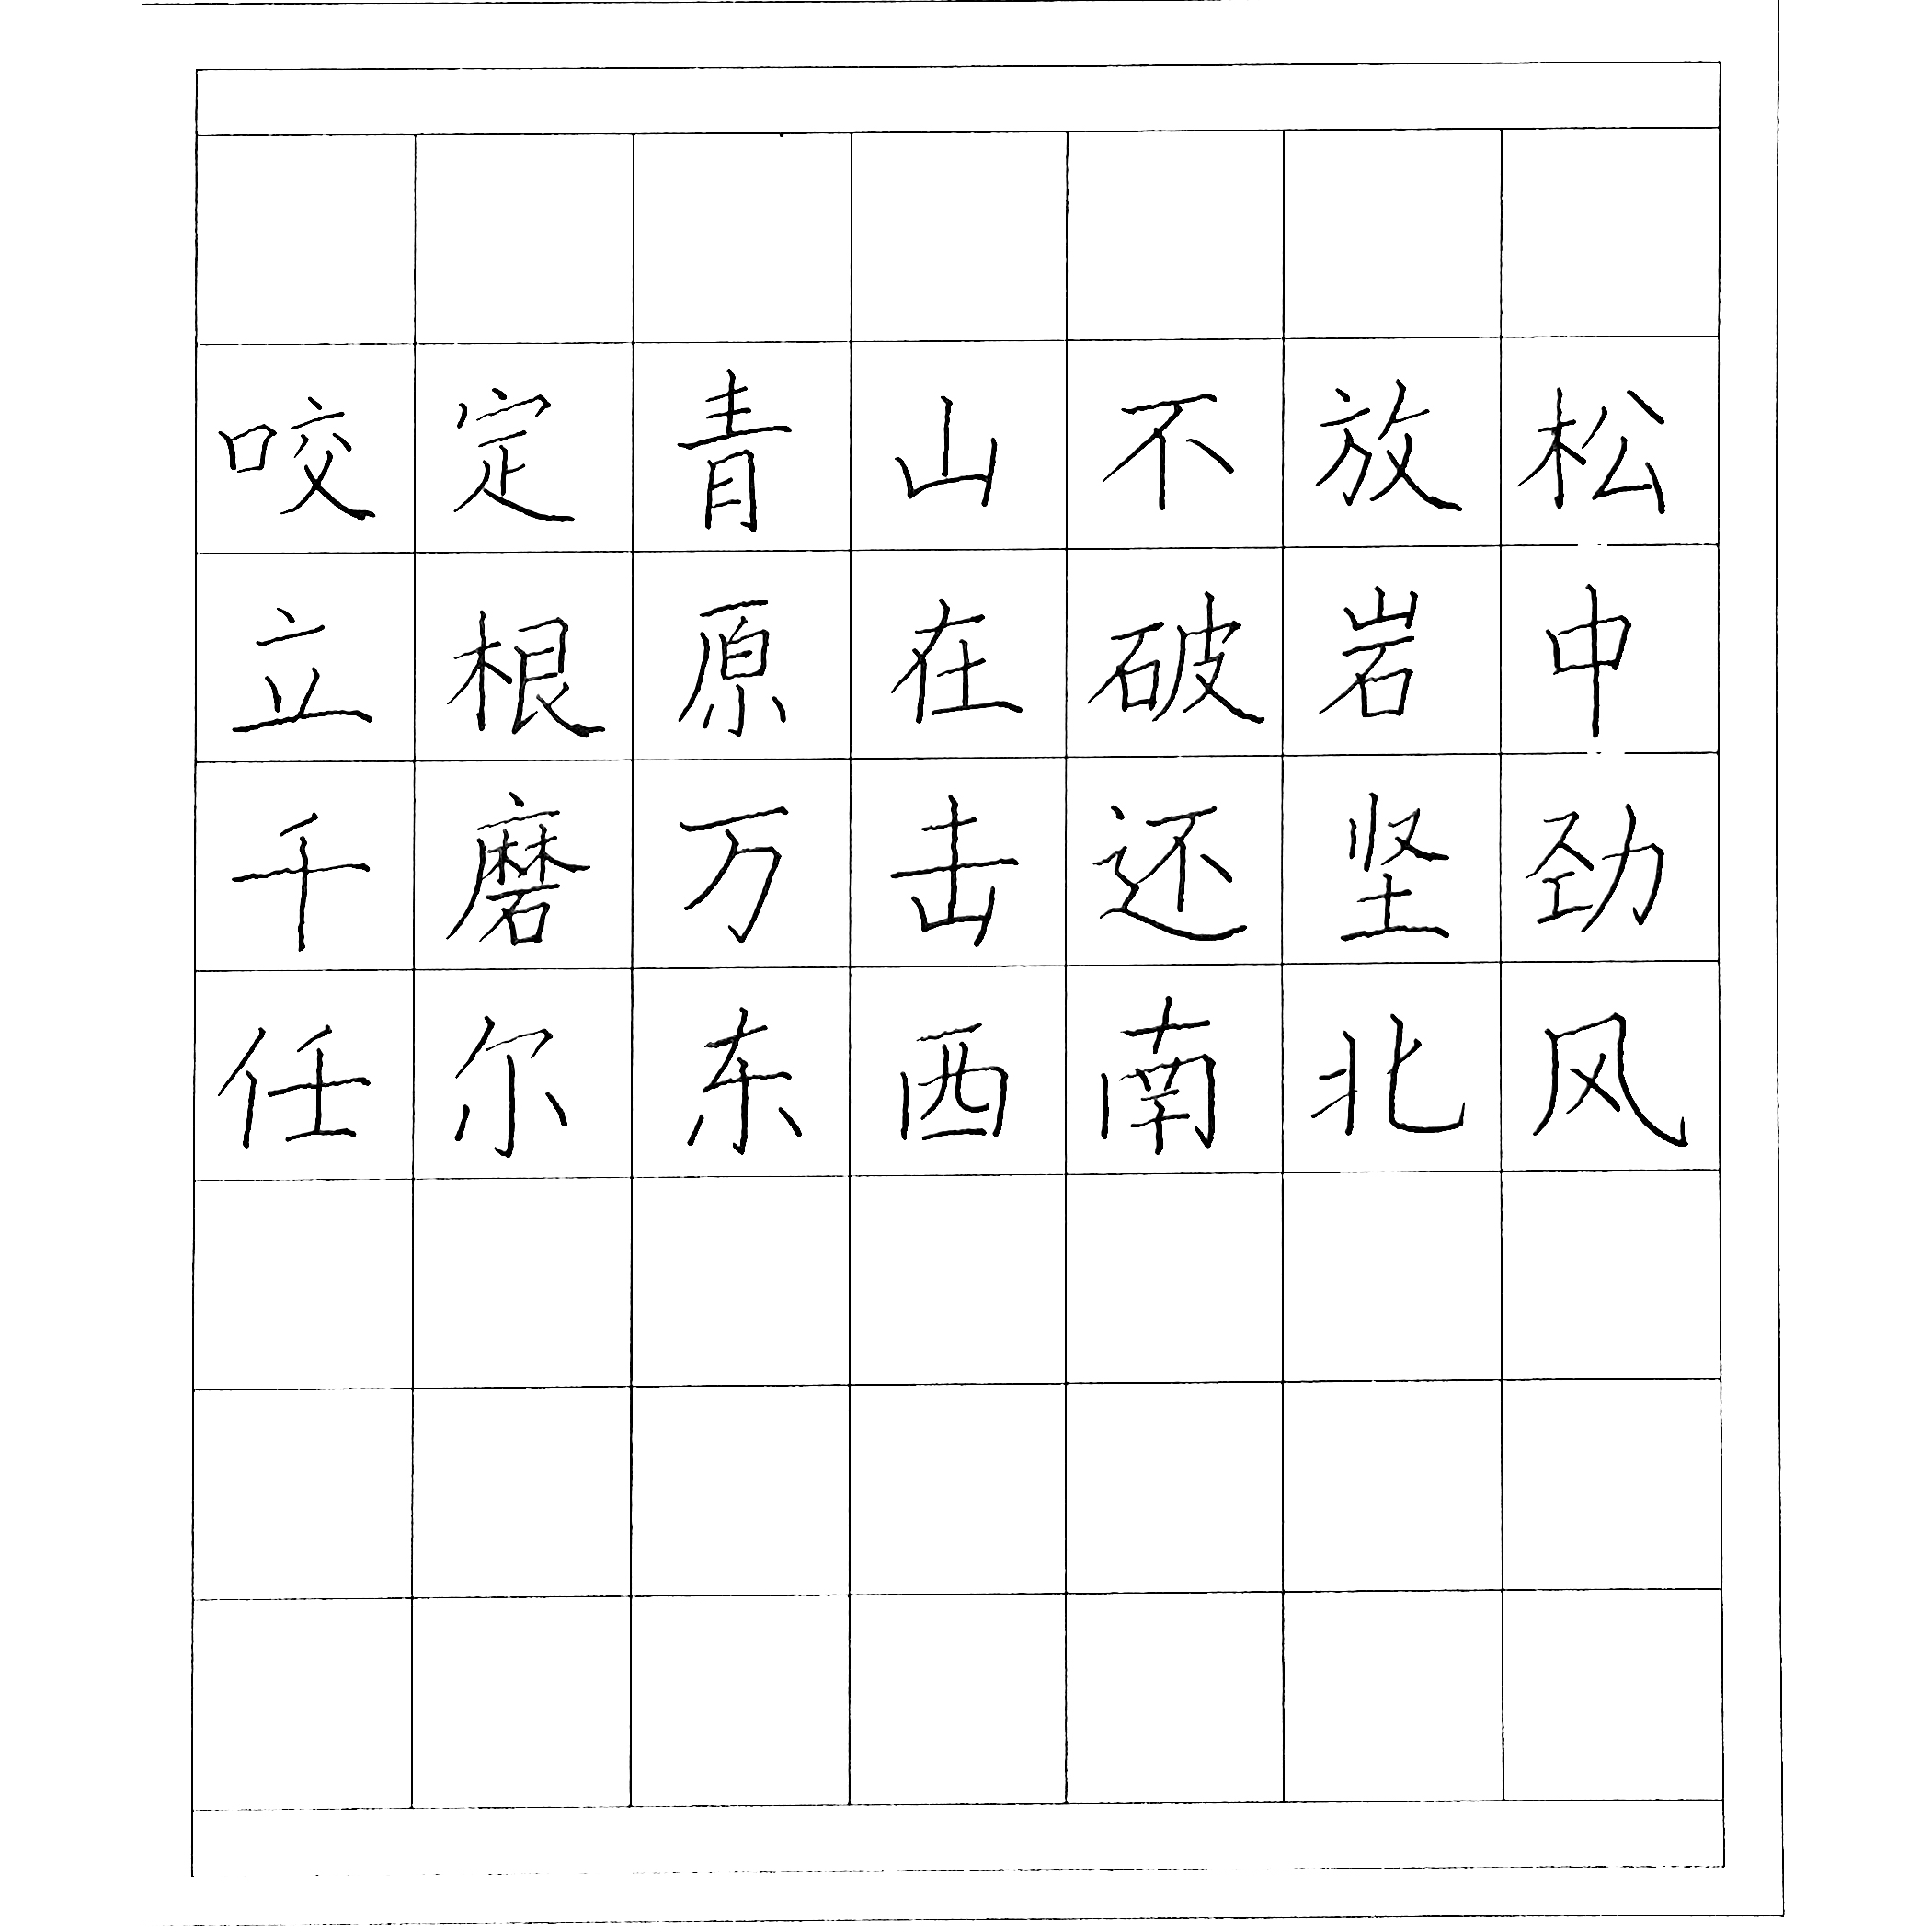 咬定青山不放松
立根原在破岩中
千磨万击还坚劲
任尔东西南北风